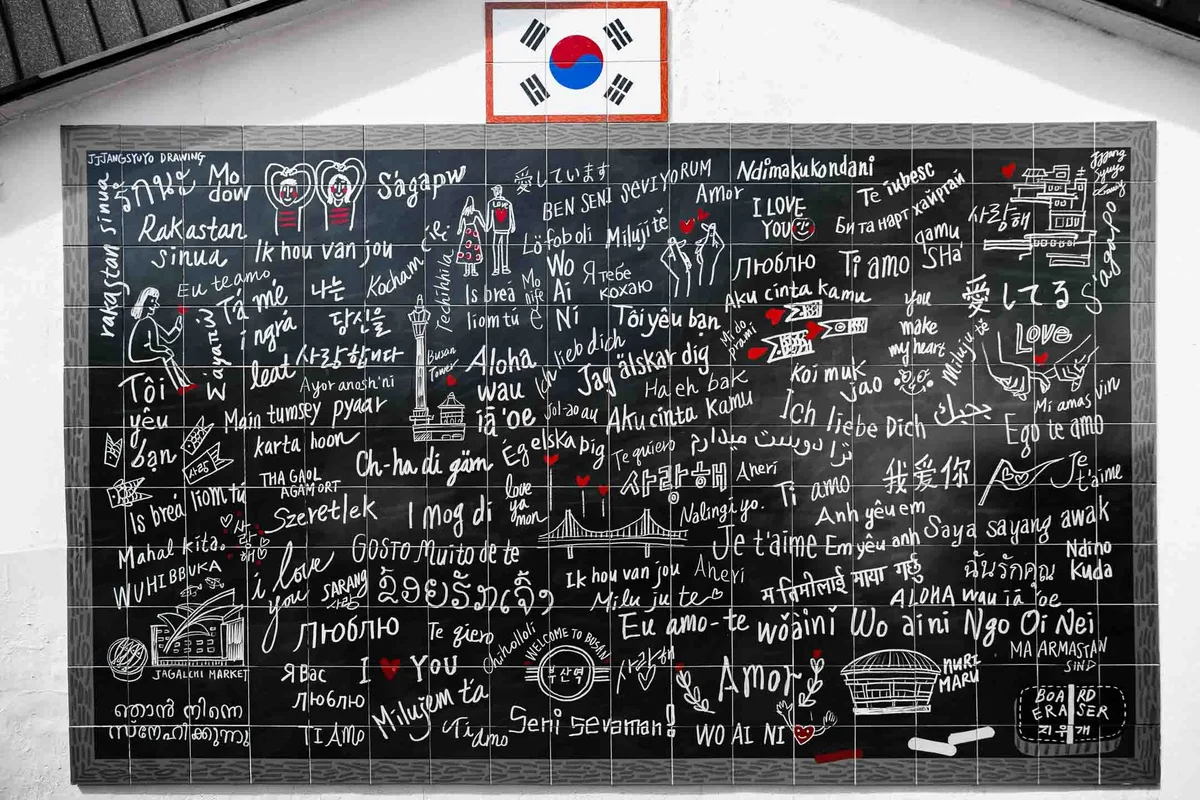 JJJANGSYUYO DRAWING
rakastan sinua
Mo
dow
Rakastan
sinua
Ságapw
愛しています
BEN SENI SEVIYORUM
Amor
Ndimakukondani
Te iubesc
I LOVE
YOU
Би танарт хайртай
사랑해
Jjjang
Syuyo
Drawing
Sagapo
Ik hou van jou
Eu te amo
Tá mé
i ngrá
leat
나는
당신을
사랑합니다
Kocham Cię
Techihhila
LOVE
Lö foboli
Miluji tě
Wo
Ai
Ni
Я тебе
кохаю
Люблю
Ti amo
gamu
SHá
愛してる
Is breá
liom tú
Mo
nife
Aku cinta kamu
you
make
my heart
Miluju tě
Love
Tôi yêu bạn
Mi do
prami
Tôi
yêu
bạn
Wayanu
Ayor anosh'ni
Busan
Tower
Aloha
wau
iā 'oe
Ich lieb dich
Jag älskar dig
Ha eh bak
Koi muk
jao
Mi amas vin
Main tumsey pyaar
karta hoon
Jol-ao au
Aku cinta Kamu
Ich liebe Dich
بحبك
Ego te amo
사랑
Ch-ha di gärn
Ég elska þig
Te quiero
ترا دوست میدارم
THA GAOL
AGAM ORT
Is breá liom tú
love
ya
mon
사랑해
Aheri
Ti amo
我爱你
Je
t'aime
Szeretlek
I mog di
Nalingi yo.
Anh yêu em
Saya sayang awak
Mahal kita.
사랑해
WUHIBBUKA
i love
you
SARANG
사랑
Gosto Muito de te
Je t'aime
Em yêu anh
Ndino
Kuda
ฉันรักคุณ
ຂ້ອຍຮັກເຈົ້າ
Ik hou van jou
Aheri
Milu ju te
म तिमीलाई माया गर्छु
ALOHA wau iā 'oe
Люблю
Te qiero
Chiholloli
WELCOME TO BUSAN
부산역
Eu amo-te
wǒàinǐ
Wo aini
Ngo Oi Nei
MA ARMASTAN
SIND
JAGALCHI MARKET
Я Вас
люблю
I
YOU
사랑해
Amor
NURI
MARU
ഞാൻ നിന്നെ
സ്നേഹിക്കുന്നു
TI AMO
Milujem ťa
Ti amo
Seni sevaman!
WO AI NI
BOARD
ERASER
지우개